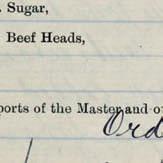 . Sugar,
Beef Heads,
ports of the Master and o
Ord